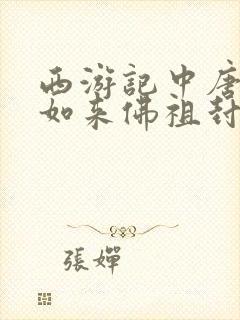 西游記中唐
如来佛祖封
張嬋